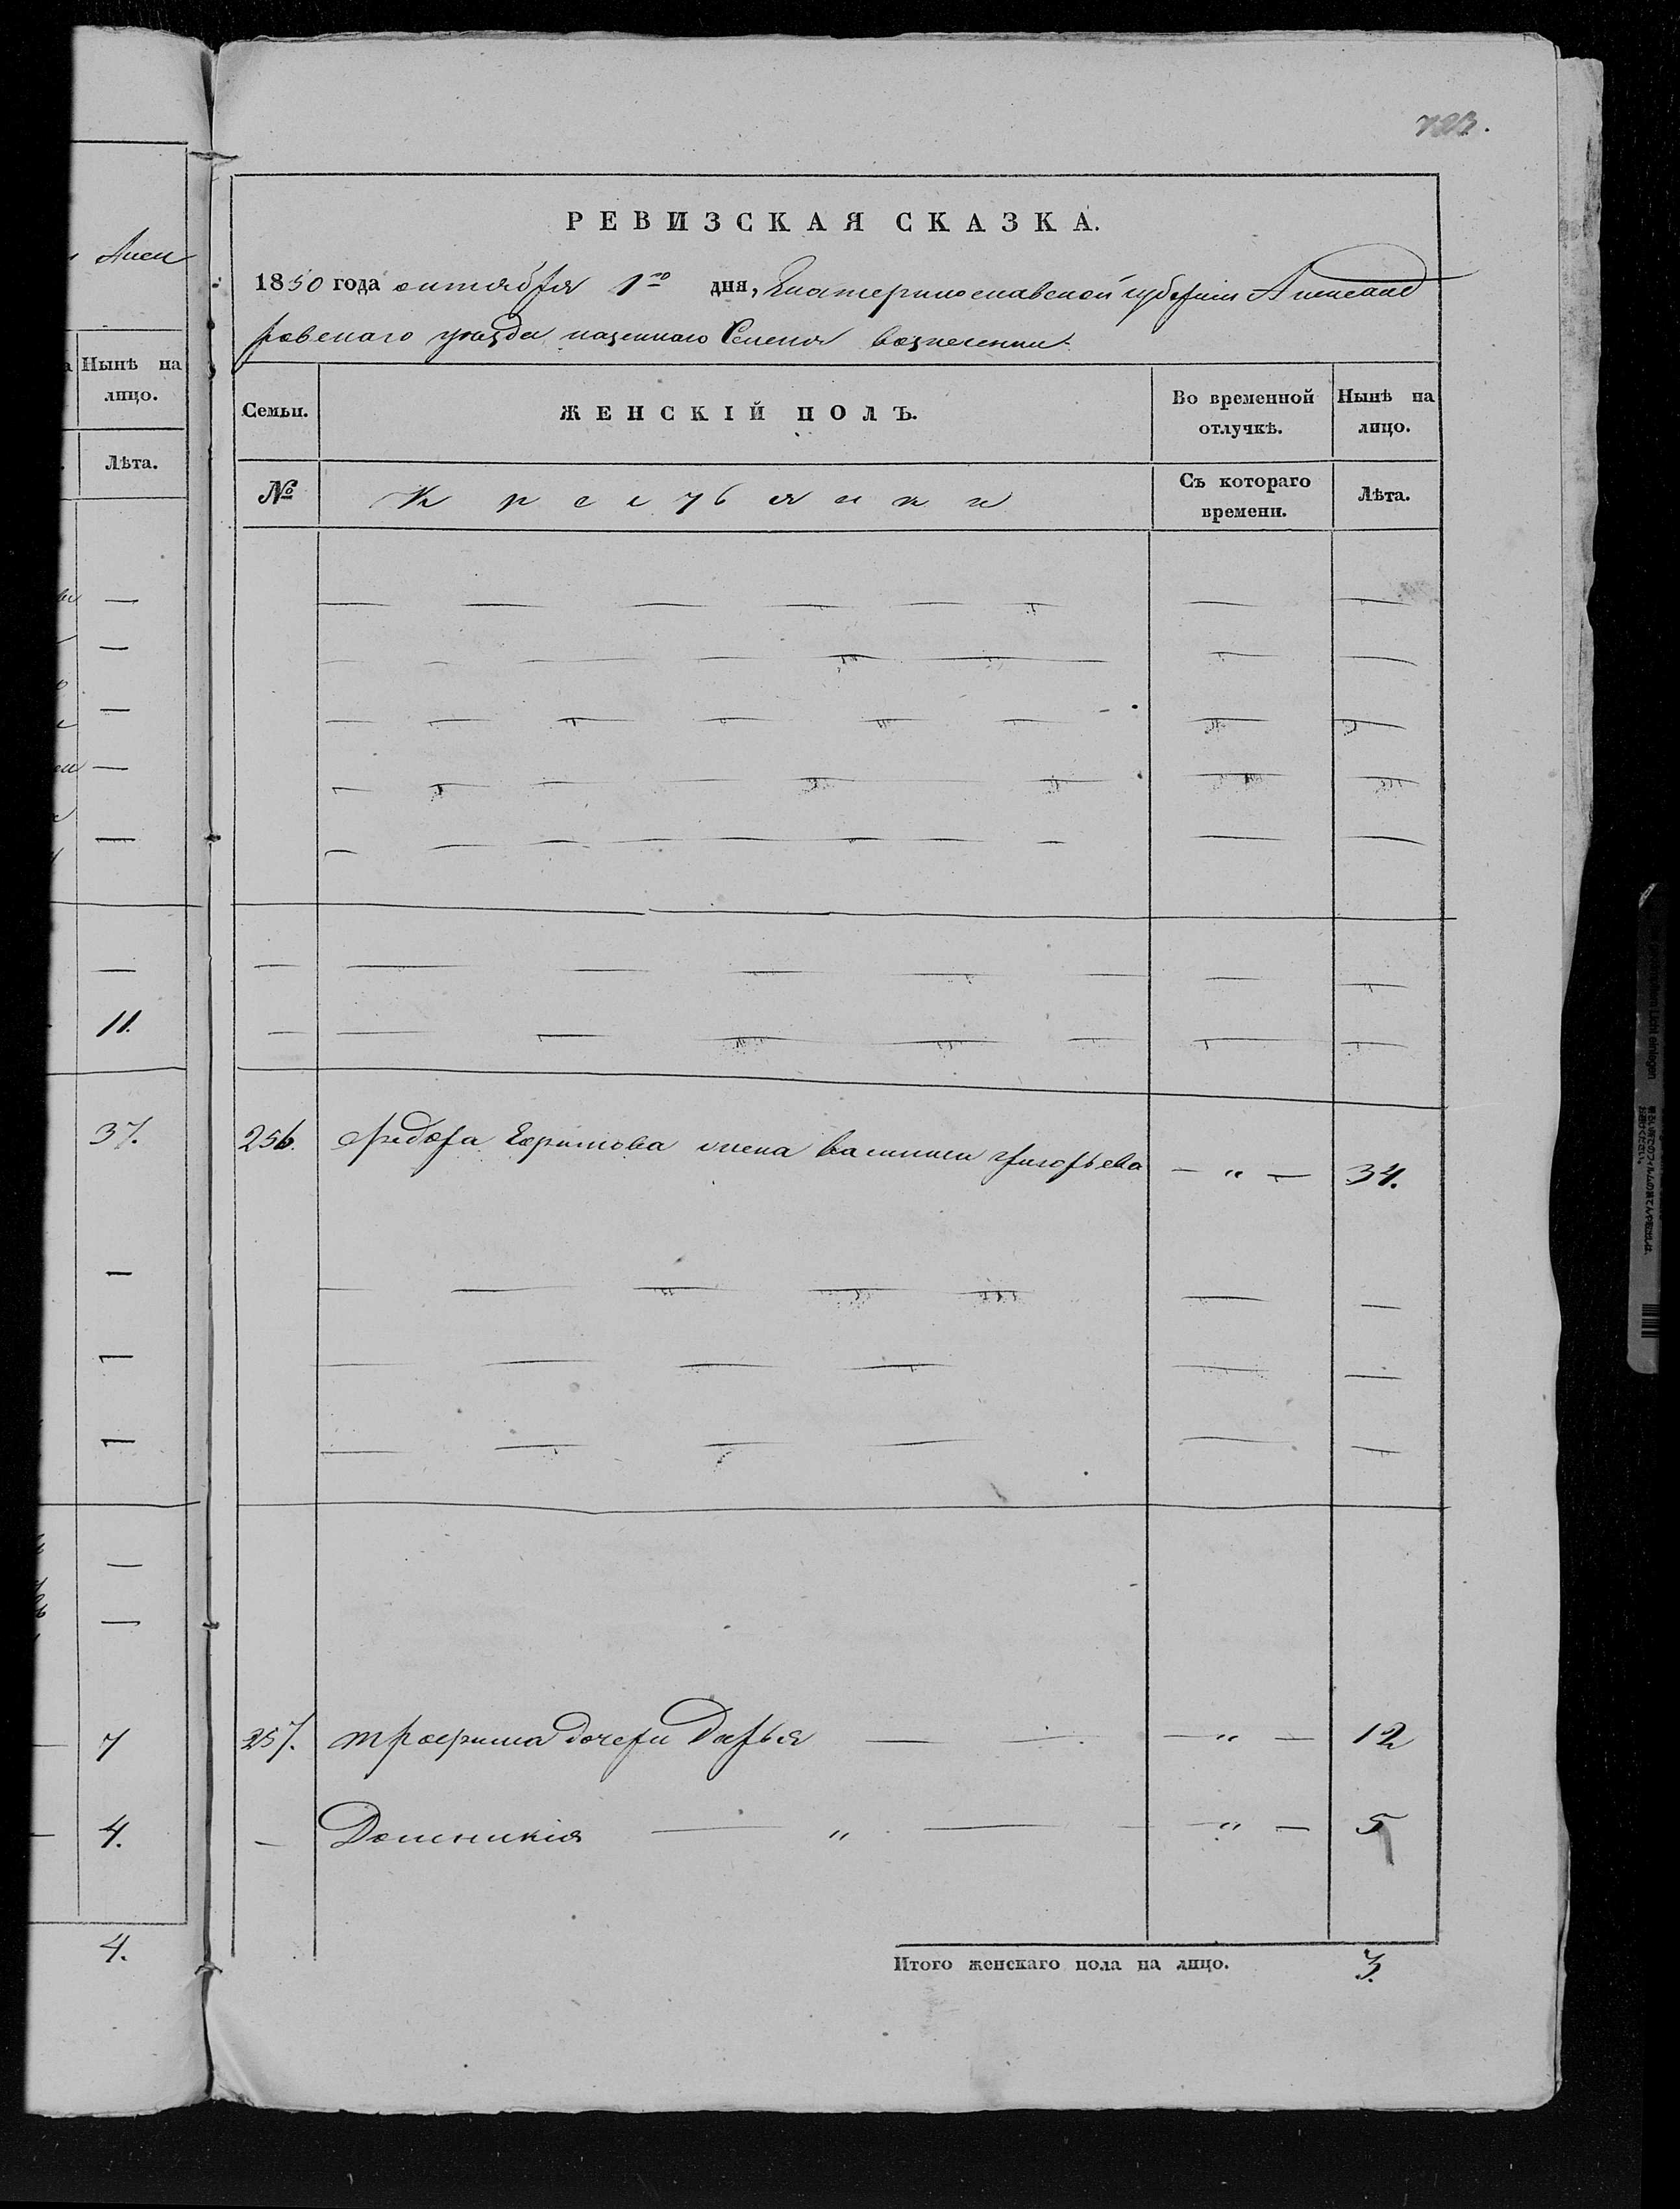 Алек
Нынѣ на
лицо.
Лѣта.
11.
37.
7
4.
4.
РЕВИЗСКАЯ СКАЗКА.
1850 года октября 1го дня, Екатеринославской губерніи Александ
ровскаго уѣзда казеннаго Селенія вознесенки
Семьи. ЖЕНСКІЙ ПОЛЪ. Во временной отлучкѣ. Нынѣ на лицо.
№ Крестьянки Съ котораго времени. Лѣта.
256. Федора Ефимова жена василиса григорьева — " — 34.
257. трофима дочери Дарья — — — " — 12
— Домникія — " — — " — 5
Итого женскаго пола на лицо. 3.